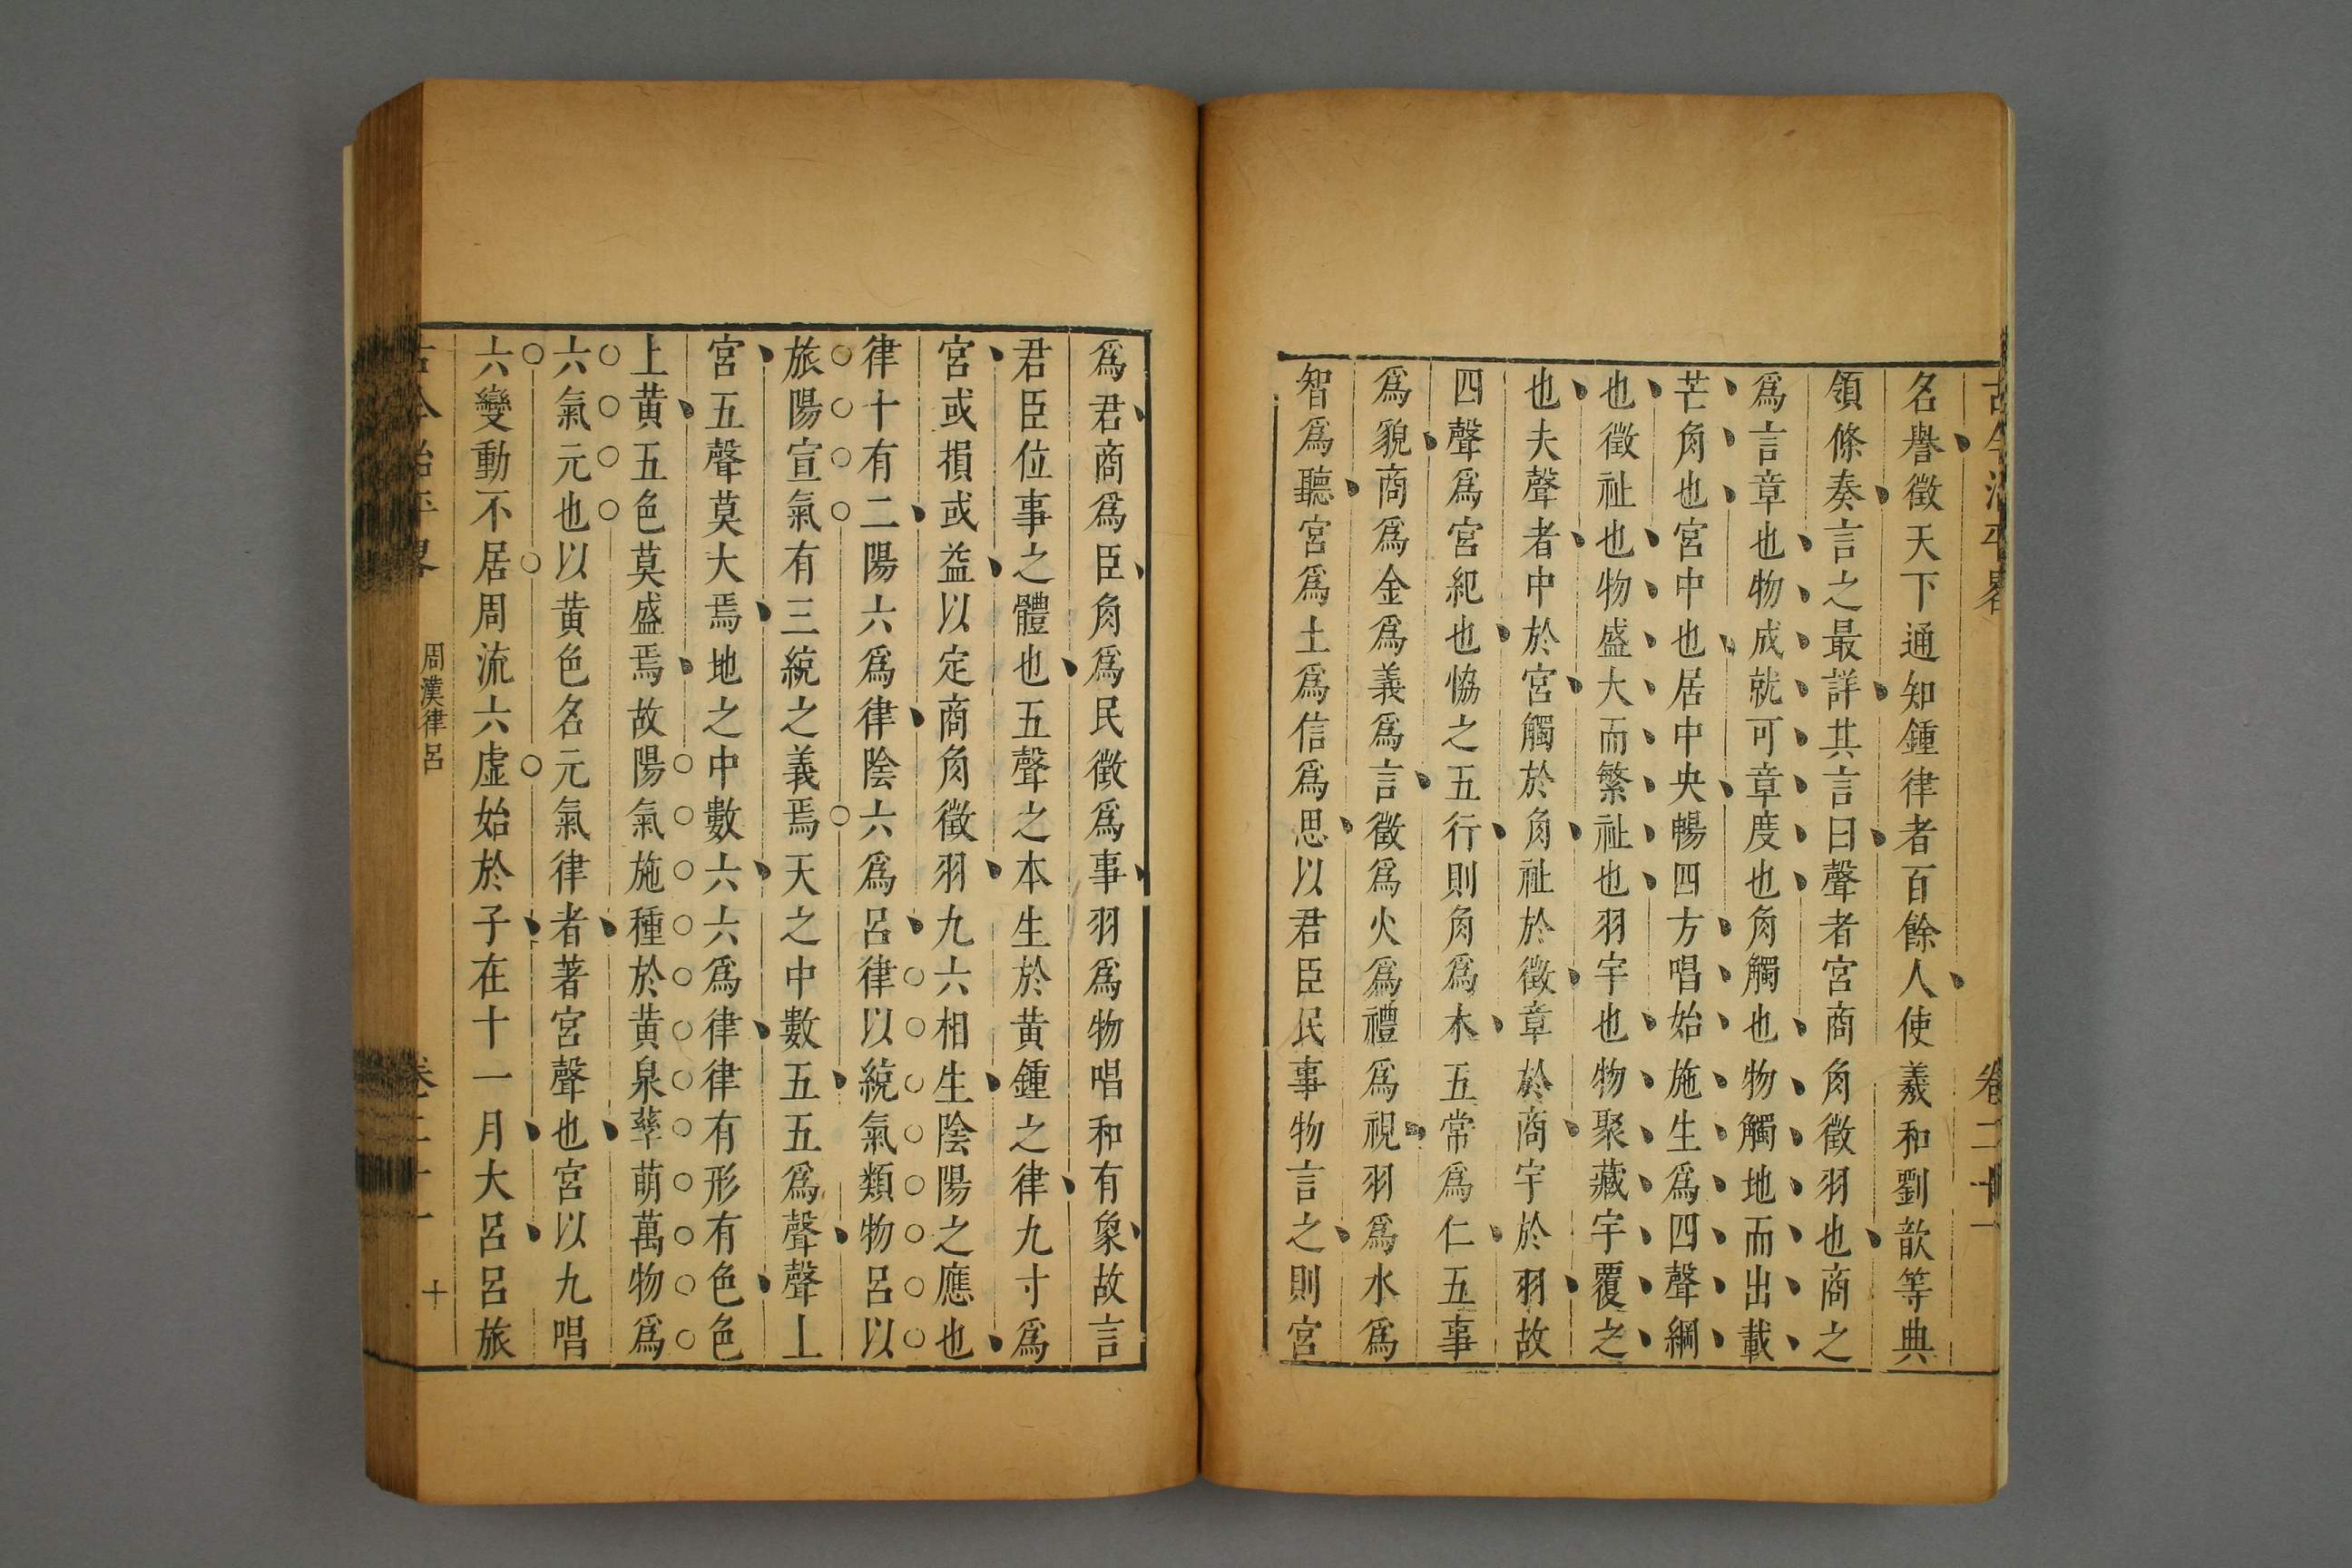 古今治平畧 卷二十一
名譽徵天下通知鍾律者百餘人使羲和劉歆等典
領條奏言之最詳其言曰聲者宮商角徵羽也商之
爲言章也物成就可章度也角觸也物觸地而出載
芒角也宮中也居中央暢四方唱始施生爲四聲綱
也徵祉也物盛大而繁祉也羽宇也物聚藏宇覆之
也夫聲者中於宮觸於角祉於徵章於商宇於羽故
四聲爲宮紀也恊之五行則角爲木五常爲仁五事
爲貌商爲金爲義爲言徵爲火爲禮爲視羽爲水爲
智爲聽宮爲土爲信爲思以君臣民事物言之則宮
爲君商爲臣角爲民徵爲事羽爲物唱和有象故言
君臣位事之體也五聲之本生於黃鍾之律九寸爲
宮或損或益以定商角徵羽九六相生陰陽之應也
律十有二陽六爲律陰六爲呂律以統氣類物呂以
旅陽宣氣有三統之義焉天之中數五五爲聲聲上
宮五聲莫大焉地之中數六六爲律律有形有色色
上黃五色莫盛焉故陽氣施種於黃泉孳萌萬物爲
六氣元也以黃色名元氣律者著宮聲也宮以九唱
六變動不居周流六虛始於子在十一月大呂呂旅
古今治平畧 周漢律呂 卷二十一 十